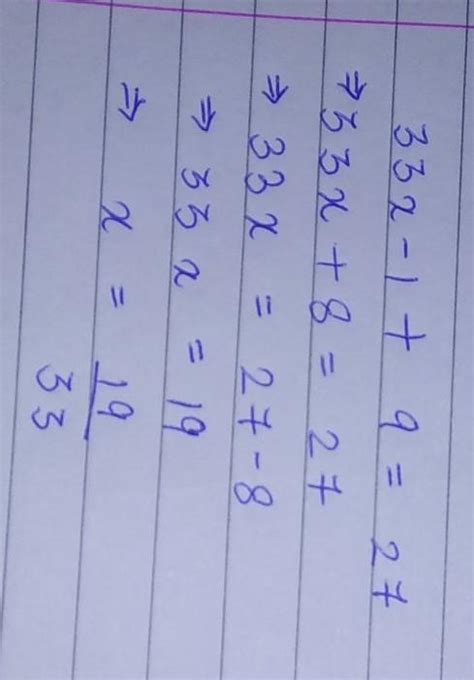 33x-1+ 9 = 27
⇒ 33x + 8 = 27
⇒ 33x = 27-8
⇒ 33x = 19
⇒ x = 19/33